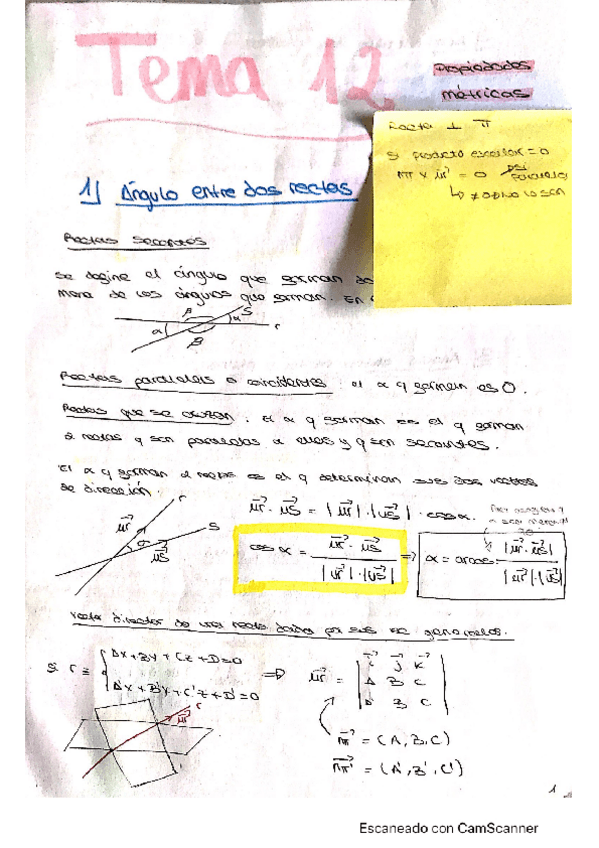 Tema 12
Propiedades
métricas
Recta ⊥ π
Si producto escalar = 0
1) Ángulo entre dos rectas
Rectas secantes
se define el ángulo que forman
de los ángulos que forman. En
β S
α α r
β
Rectas paralelas o coincidentes: el α q forman es 0.
Rectas que se cruzan: El α q forman es el q forman
2 rectas q son paralelas a ellas y q son secantes.
El α q forman 2 rectas es el q determinan sus dos vectores
de dirección:
ur · us = |ur| · |us| · cos α.
r
S
ur
α
us
cos α = ur · us / |ur| · |us| => α = arcos |ur · us| / |ur| · |us|
Vector director de una recta dada por sus ec generales.
Si r ≡ { Ax + By + Cz + D = 0
A'x + B'y + C'z + D' = 0
=> ur = | i j k
A B C
r
ur
nπ = (A, B, C)
nπ' = (A', B', C')
1
Escaneado con CamScanner